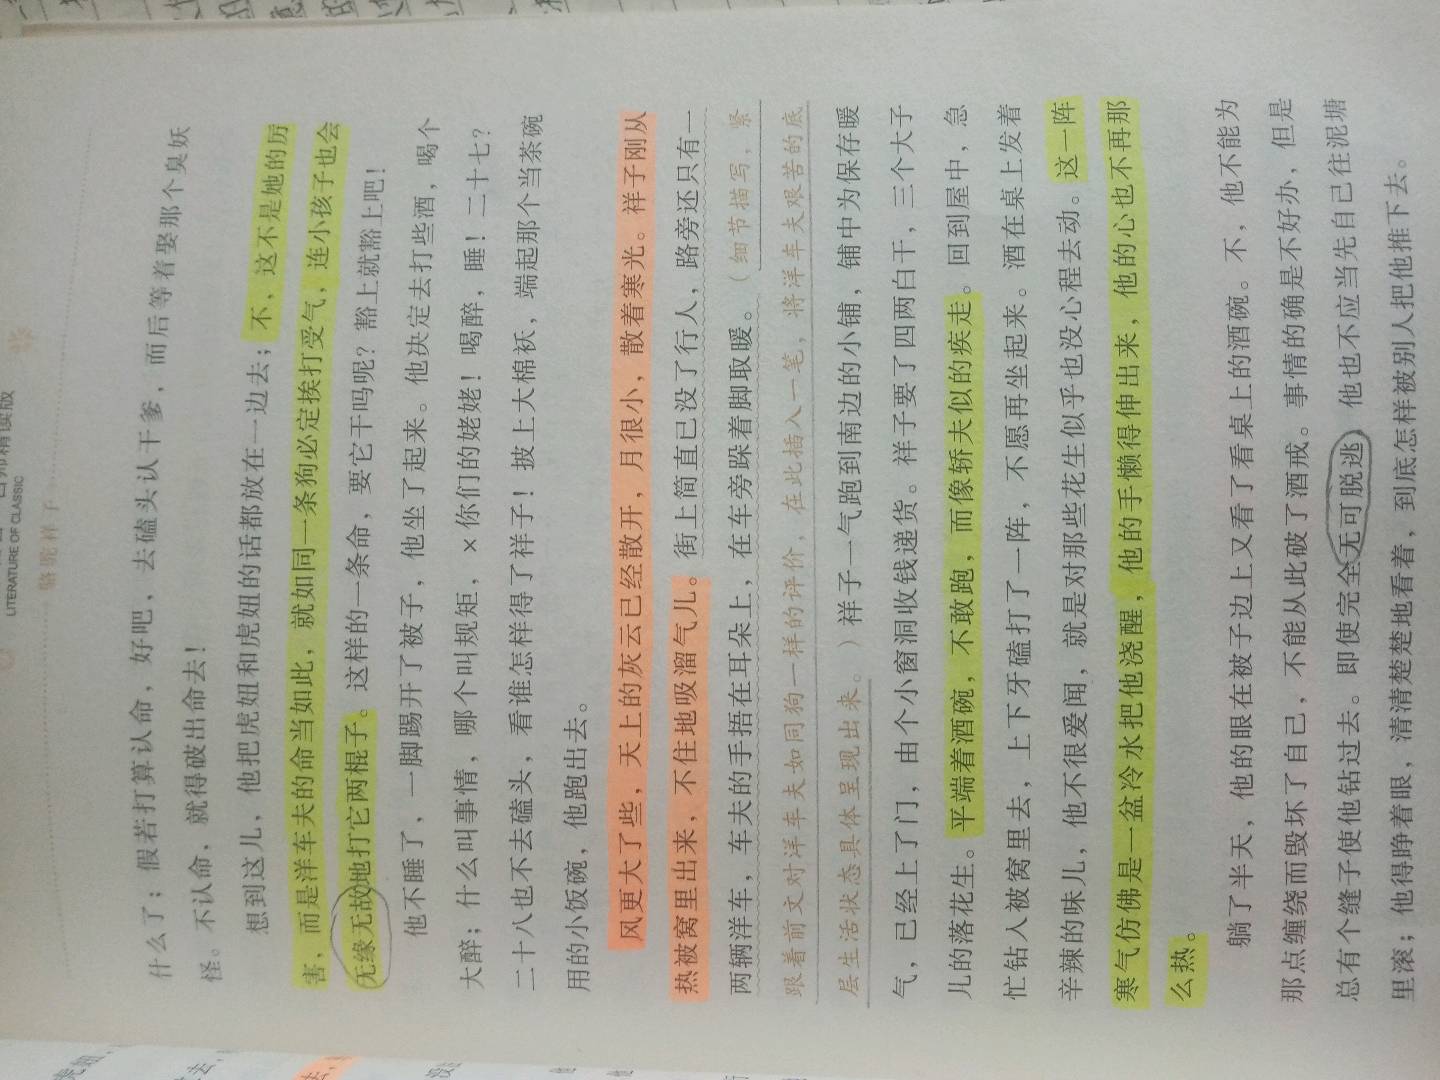 名师精读版
LITERATURE OF CLASSIC
骆驼祥子
什么了；假若打算认命，好吧，去磕头认干爹，而后等着娶那个臭妖
怪。不认命，就得破出命去！
想到这儿，他把虎妞和虎妞的话都放在一边去；不，这不是她的厉
害，而是洋车夫的命当如此，就如同一条狗必定挨打受气，连小孩子也会
无缘无故地打它两棍子。这样的一条命，要它干吗呢？豁上就豁上吧！
他不睡了，一脚踢开了被子，他坐了起来。他决定去打些酒，喝个
大醉；什么叫事情，哪个叫规矩，×你们的姥姥！喝醉，睡！二十七？
二十八也不去磕头，看谁怎样得了祥子！披上大棉袄，端起那个当茶碗
用的小饭碗，他跑出去。
风更大了些，天上的灰云已经散开，月很小，散着寒光。祥子刚从
热被窝里出来，不住地吸溜气儿。街上简直已没了行人，路旁还只有一
两辆洋车，车夫的手捂在耳朵上，在车旁跺着脚取暖。（细节描写，紧
跟着前文对洋车夫如同狗一样的评价，在此插入一笔，将洋车夫艰苦的底
层生活状态具体呈现出来。）祥子一气跑到南边的小铺，铺中为保存暖
气，已经上了门，由个小窗洞收钱递货。祥子要了四两白干，三个大子
儿的落花生。平端着酒碗，不敢跑，而像轿夫似的疾走。回到屋中，急
忙钻入被窝里去，上下牙磕打了一阵，不愿再坐起来。酒在桌上发着
辛辣的味儿，他不很爱闻，就是对那些花生似乎也没心程去动。这一阵
寒气仿佛是一盆冷水把他浇醒，他的手懒得伸出来，他的心也不再那
么热。
躺了半天，他的眼在被子边上又看了看桌上的酒碗。不，他不能为
那点缠绕而毁坏了自己，不能从此破了酒戒。事情的确是不好办，但是
总有个缝子使他钻过去。即使完全无可脱逃，他也不应当先自己往泥塘
里滚；他得睁着眼，清清楚楚地看着，到底怎样被别人把他推下去。